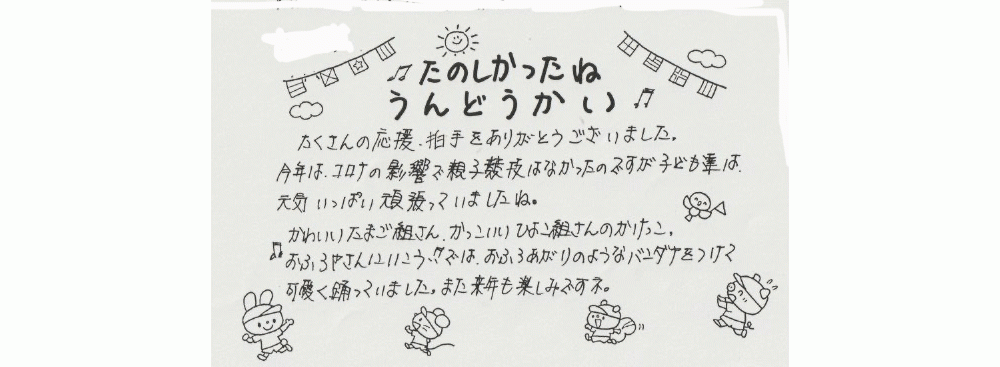 たのしかったね
うんどうかい
たくさんの応援、拍手をありがとうございました。
今年は、コロナの影響で親子競技はなかったのですが子ども達は、
元気いっぱい頑張っていましたね。
かわいいたまご組さん、かっこいいひよこ組さんのかけっこ。
"おふろやさんにいこう!!"では、おふろあがりのようなバンダナをつけて
可愛く踊っていました。また来年も楽しみですネ。